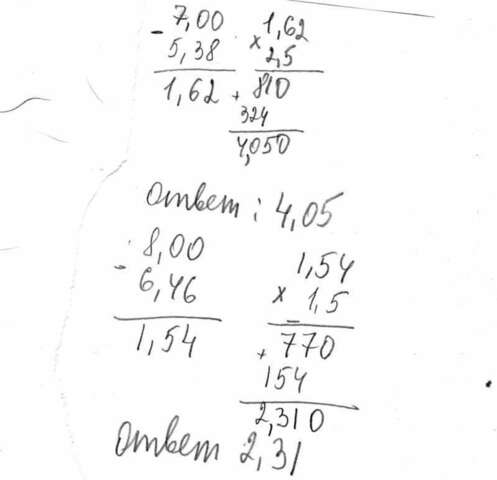 - 7,00
5,38
1,62
× 1,62
2,5
+ 810
324
4,050
Ответ: 4,05
- 8,00
6,46
1,54
1,54
× 1,5
+ 770
154
2,310
Ответ 2,31